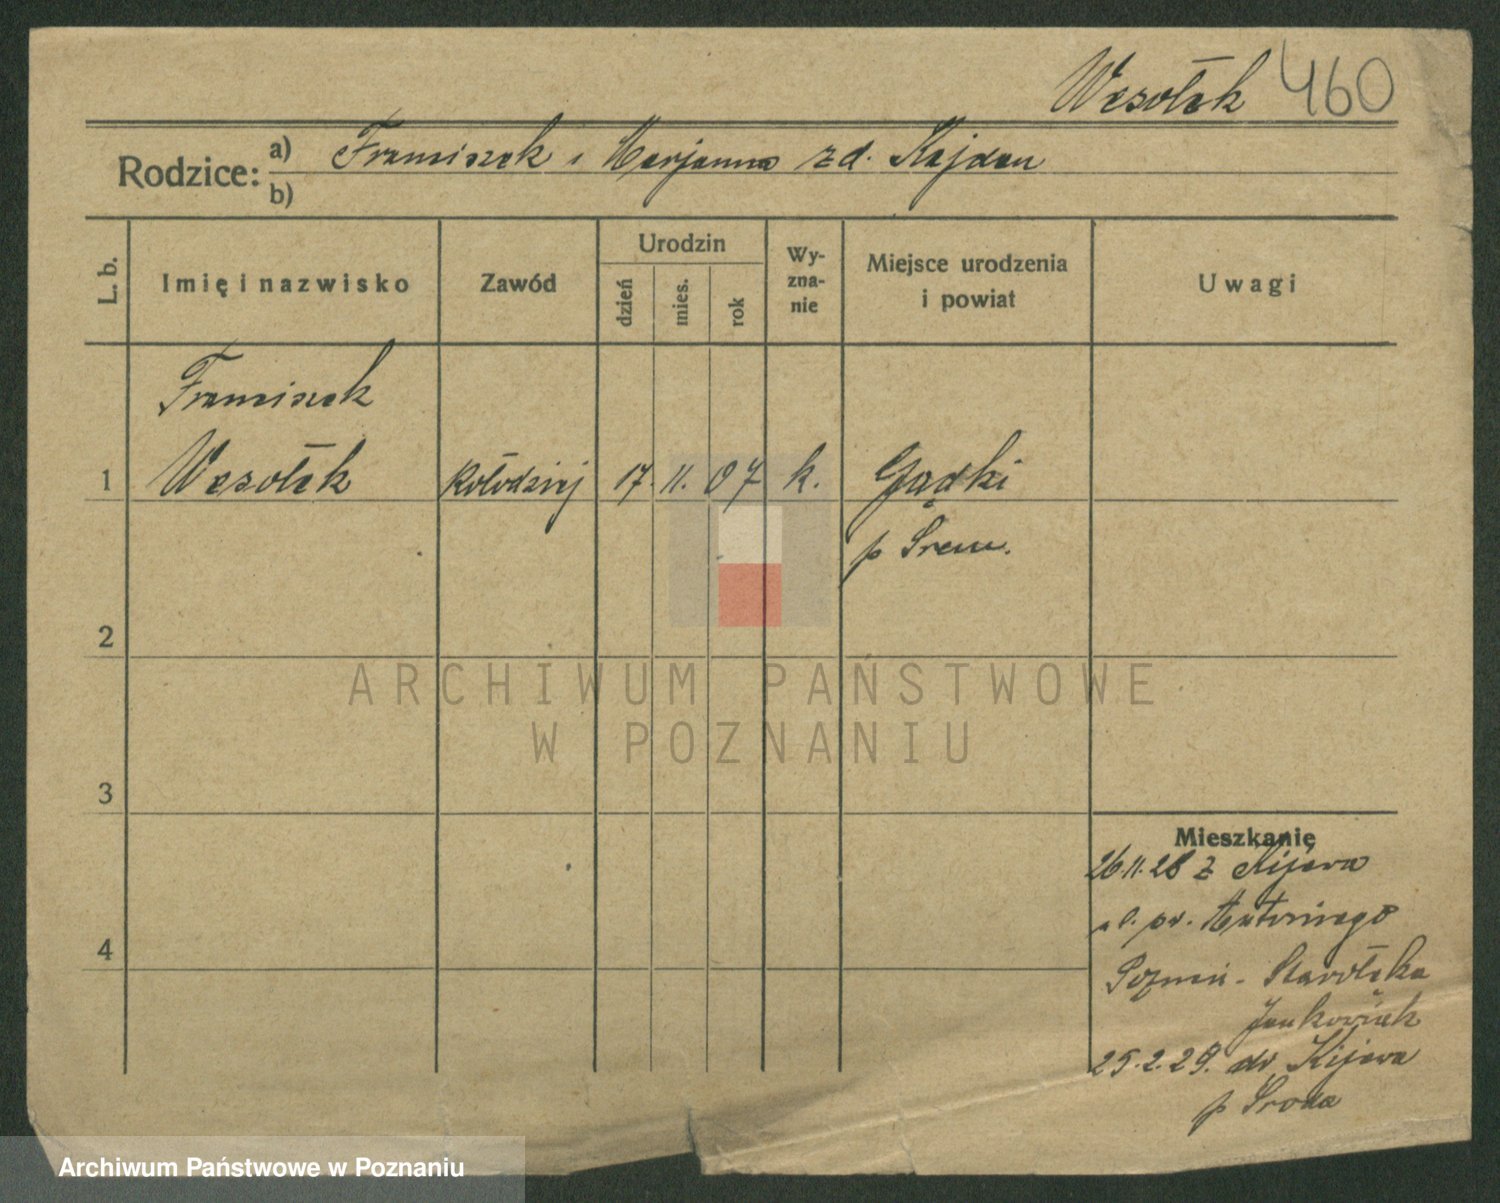 Wesołek 460
Rodzice: a) Franciszek i Marjanna zd. Kajdan
b)
L. b.
Imię i nazwisko
Zawód
Urodzin
dzień
mies.
rok
Wy-
zna-
nie
Miejsce urodzenia
i powiat
Uwagi
Franciszek
1 Wesołek kołodziej 17. 11. 07 k. Gądki
p Śrem.
2
ARCHIWUM PAŃSTWOWE
W POZNANIU
3
Mieszkanie
26.11.28 z Kijewa
św. Antoniego
4
Poznań - Starołęka
Jankowiak
25.2.29. do Kijewa
p Środa
Archiwum Państwowe w Poznaniu